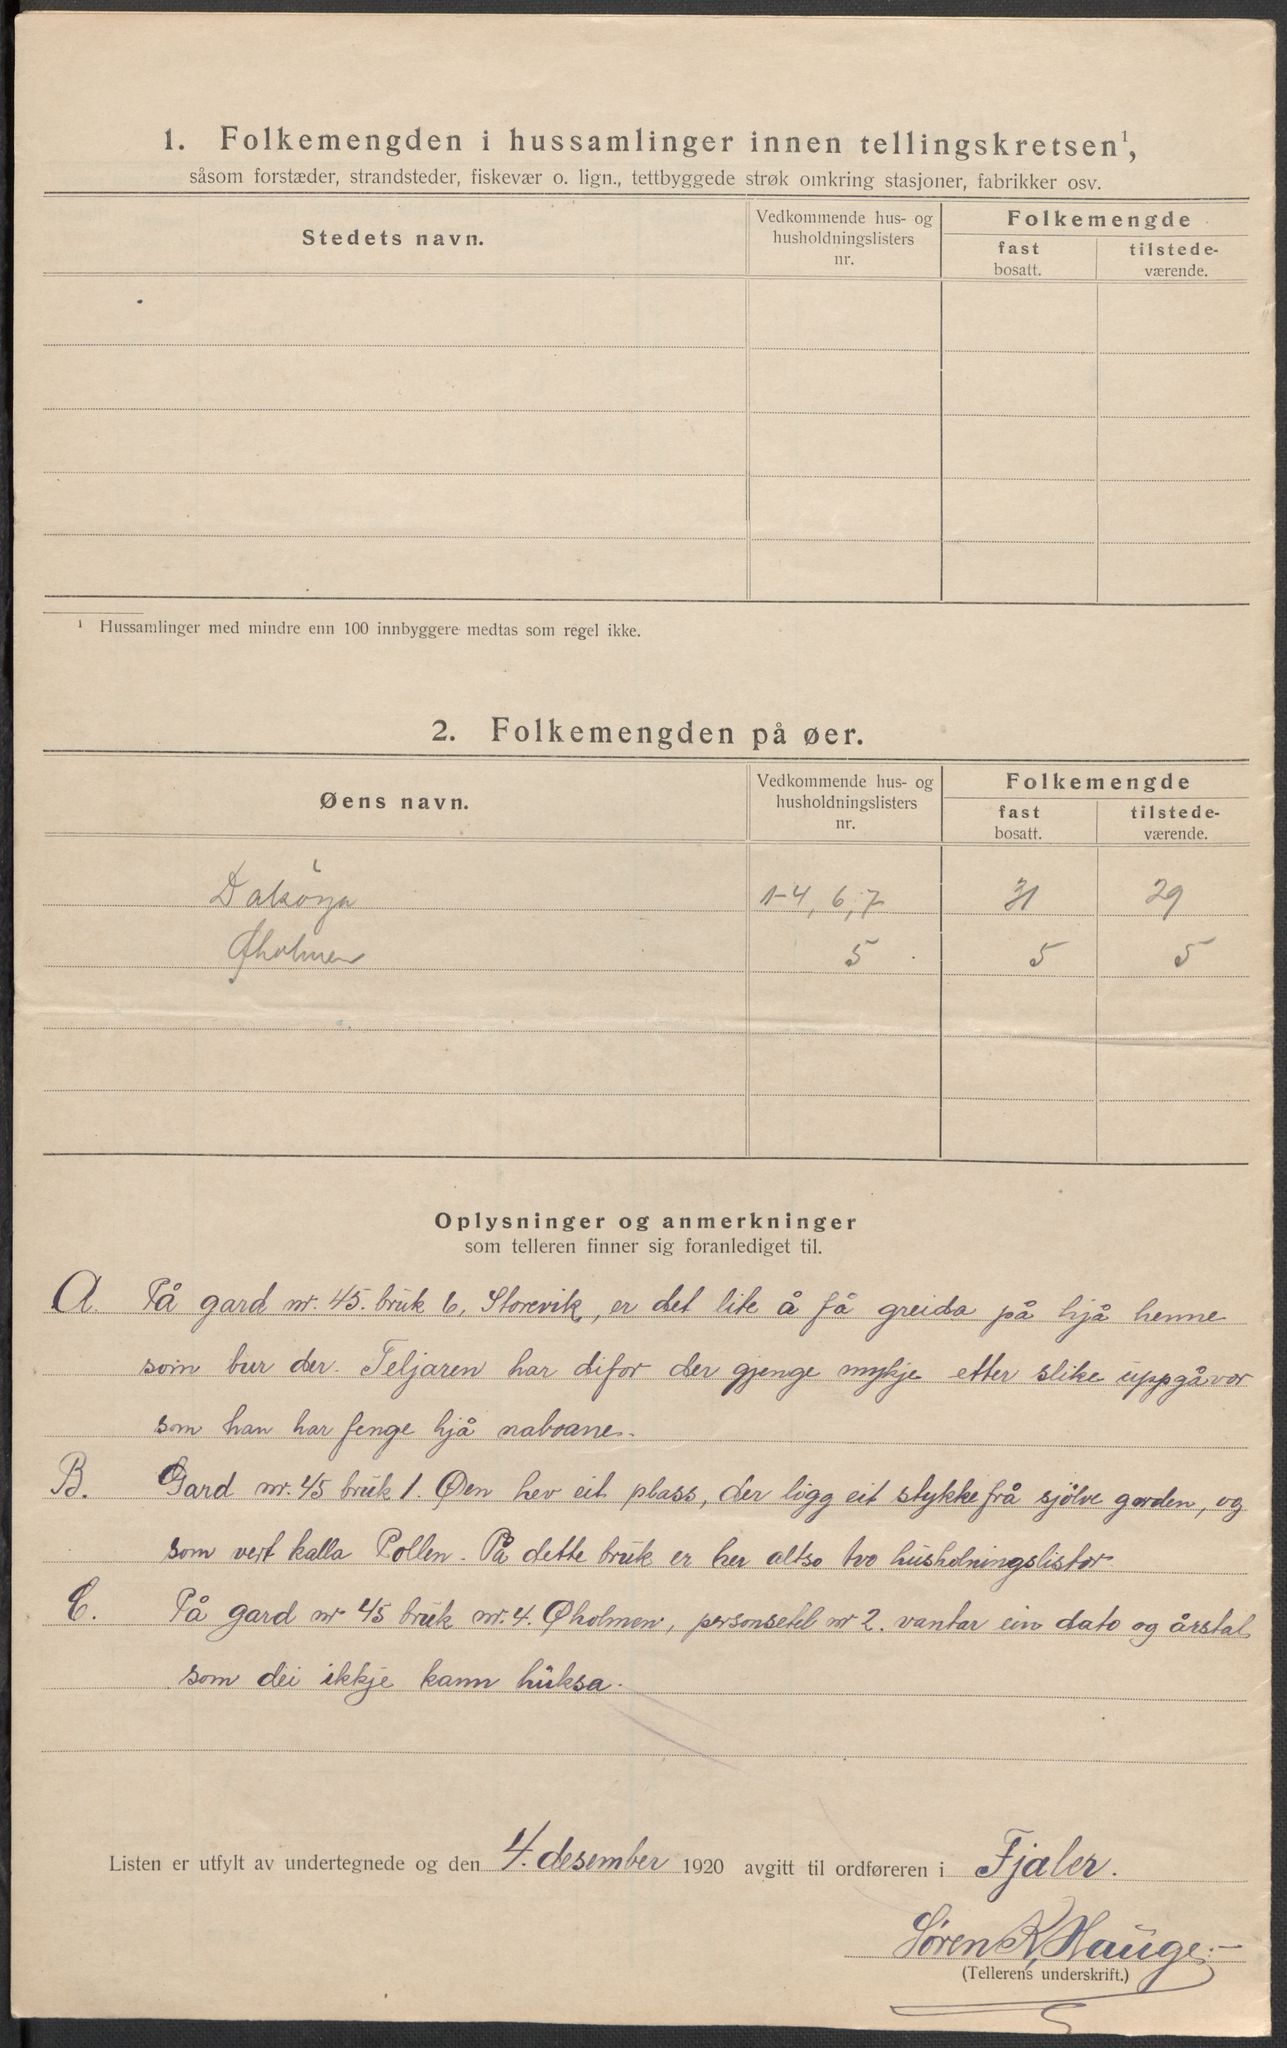 1. Folkemengden i hussamlinger innen tellingskretsen¹,
såsom forstæder, strandsteder, fiskevær o. lign., tettbyggede strøk omkring stasjoner, fabrikker osv.
Stedets navn.
Vedkommende hus- og husholdningslisters nr.
Folkemengde
fast bosatt.
tilstedeværende.
¹ Hussamlinger med mindre enn 100 innbyggere medtas som regel ikke.
2. Folkemengden på øer.
Øens navn.
Vedkommende hus- og husholdningslisters nr.
Folkemengde
fast bosatt.
tilstedeværende.
1-4, 6, 7 31 29
Øholmen 5 5 5
Oplysninger og anmerkninger
som telleren finner sig foranlediget til.
A. På gard nr. 45. bruk 6, Storevik, er det lite å få greida på hjå henne
som bur der. Teljaren har difor der gjenge mykje etter slike uppgåvor
som han har fenge hjå naboane.
B. Gard nr. 45 bruk 1. Øen hev eit plass, der ligg eit stykke frå sjölve garden, og
som vert kalla Pollen. På dette bruk er her altso tvo husholningslistor
C. På gard nr 45 bruk nr. 4. Øholmen, personsetel nr 2. vantar ein dato og årstal
som dei ikkje kann huksa.
Listen er utfylt av undertegnede og den 4. desember 1920 avgitt til ordføreren i Fjaler.
Søren K. Hauge.-
(Tellerens underskrift.)